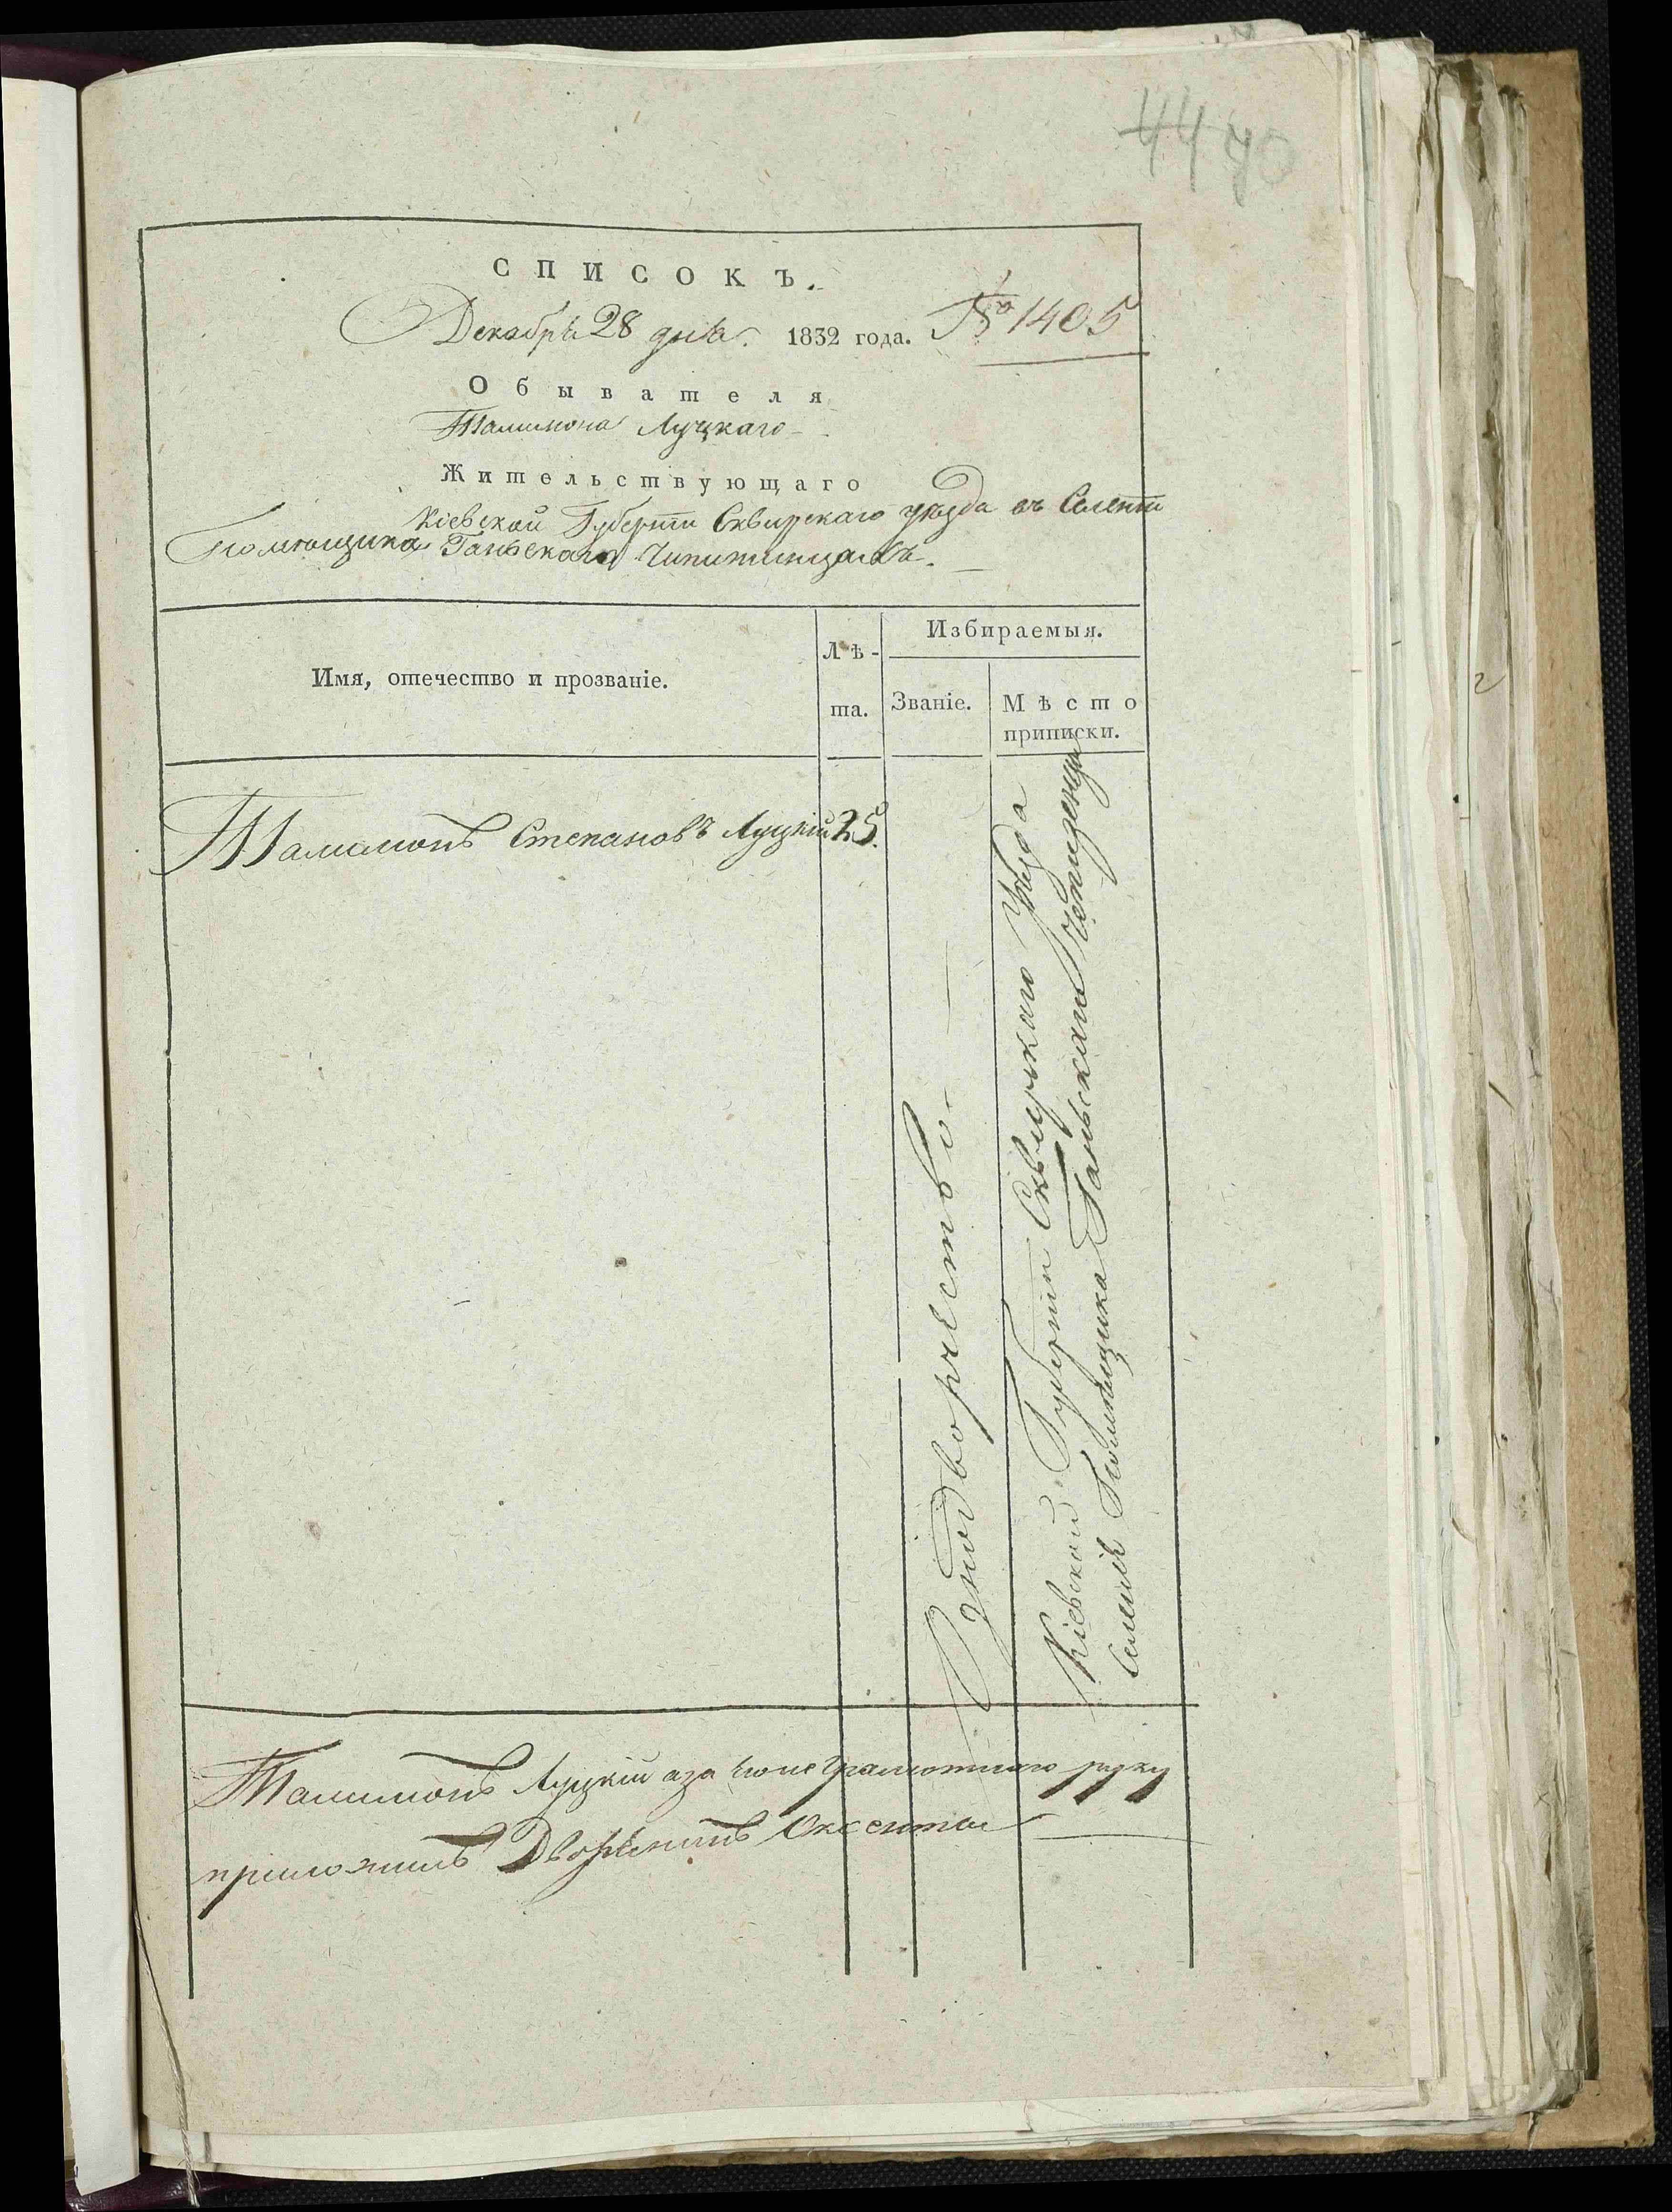 44 70
СПИСОКЪ.
Декабря 28 дня. 1832 года. № 1405
Обывателя
Талимона Луцкаго
Жительствующаго
Кіевской Губерніи Сквирскаго уезда въ Селеніи
Помющика Ганьскаго
Избираемыя.
Лѣ-
Имя, отечество и прозваніе.
та.
Званіе.
Мѣсто
приписки.
Талимонъ Степановъ Луцкій 25.
Однодворчество
Кіевской Губерніи Сквирскаго Уезда
Селеніе Помющика Ганьскаго
Талимонъ Луцкій аза неграмотнаго руку
приложилъ Дворенинъ